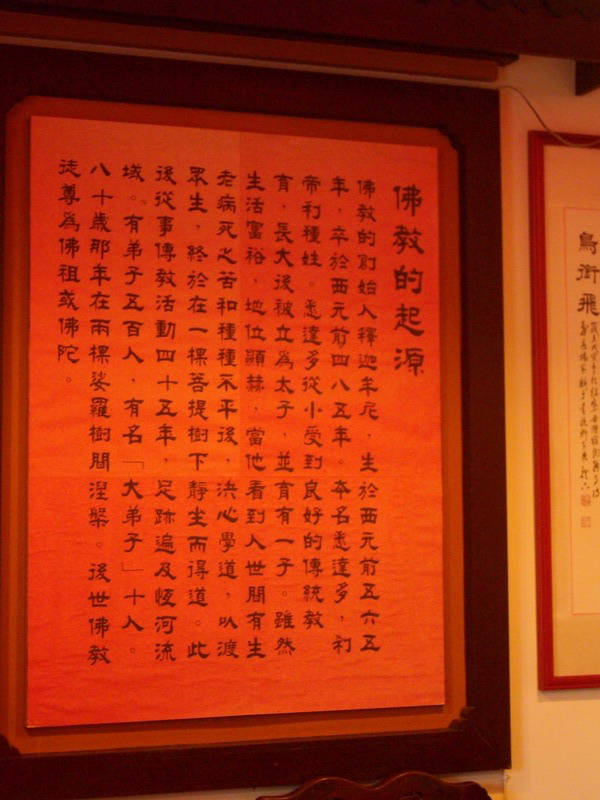 佛教的起源
佛教的創始人釋迦牟尼，生於西元前五六五
年，卒於西元前四八五年。本名悉達多，刹
帝利種姓。悉達多從小受到良好的傳統教
育，長大後被立為太子，並育有一子。雖然
生活富裕，地位顯赫，當他看到人世間有生
老病死之苦和種種不平後，決心學道，以渡
眾生，終於在一棵菩提樹下靜坐而得道。此
後從事傳教活動四十五年，足跡遍及恆河流
域。有弟子五百人，有名「大弟子」十人。
八十歲那年在兩棵娑羅樹間涅槃。後世佛教
徒尊為佛祖或佛陀。
鳥街飛